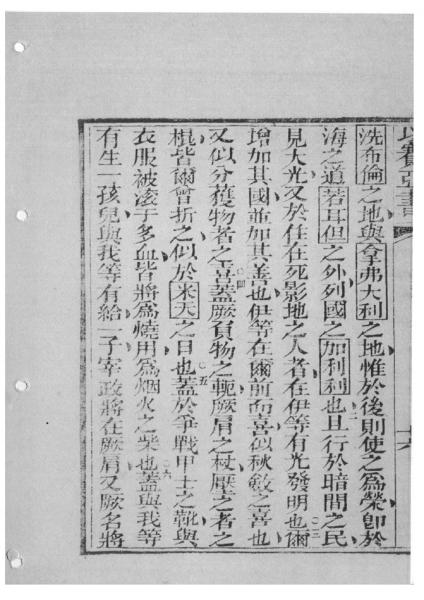 以賽亞書
洗布倫之地與拿弗大利之地惟於後則使之爲榮卽於
海之道若耳但之外列國之加利利也且行於暗間之民
見大光又於住在死影地之人者在伊等有光發明也爾
增加其國並加其喜也伊等在爾前而喜似秋斂之喜也
又似分獲物者之喜蓋厥負物之軛厥肩之杖壓之者之
棍皆爾曾折之似於米天之日也蓋於爭戰甲士之靴與
衣服被滾于多血皆將爲燒用爲烟火之柴也蓋與我等
有生一孩兒與我等有給一子宰政將在厥肩又厥名將